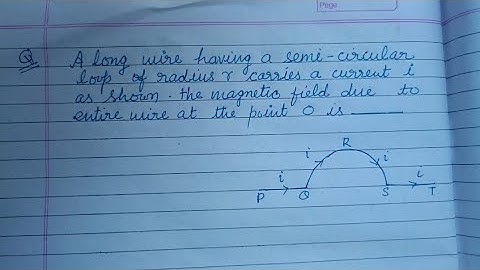 Page
Q A long wire having a semi-circular
loop of radius r carries a current i
as shown. the magnetic field due to
entire wire at the point O is ______
R
i i
i i
P Q S T